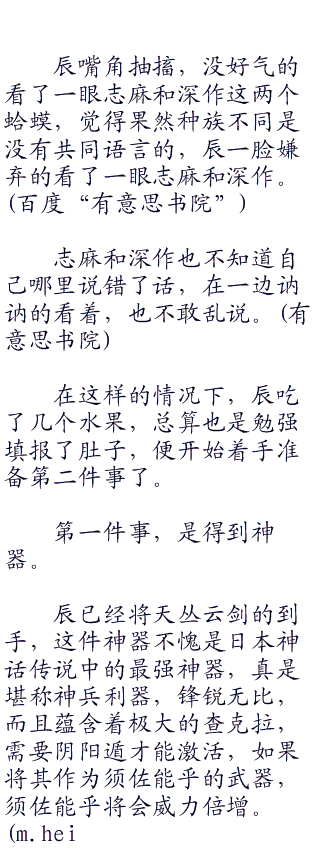 辰嘴角抽搐，没好气的
看了一眼志麻和深作这两个
蛤蟆，觉得果然种族不同是
没有共同语言的，辰一脸嫌
弃的看了一眼志麻和深作。
(百度“有意思书院”)
志麻和深作也不知道自
己哪里说错了话，在一边讷
讷的看着，也不敢乱说。(有
意思书院)
在这样的情况下，辰吃
了几个水果，总算也是勉强
填报了肚子，便开始着手准
备第二件事了。
第一件事，是得到神
器。
辰已经将天丛云剑的到
手，这件神器不愧是日本神
话传说中的最强神器，真是
堪称神兵利器，锋锐无比，
而且蕴含着极大的查克拉，
需要阴阳遁才能激活，如果
将其作为须佐能乎的武器，
须佐能乎将会威力倍增。
(m.hei